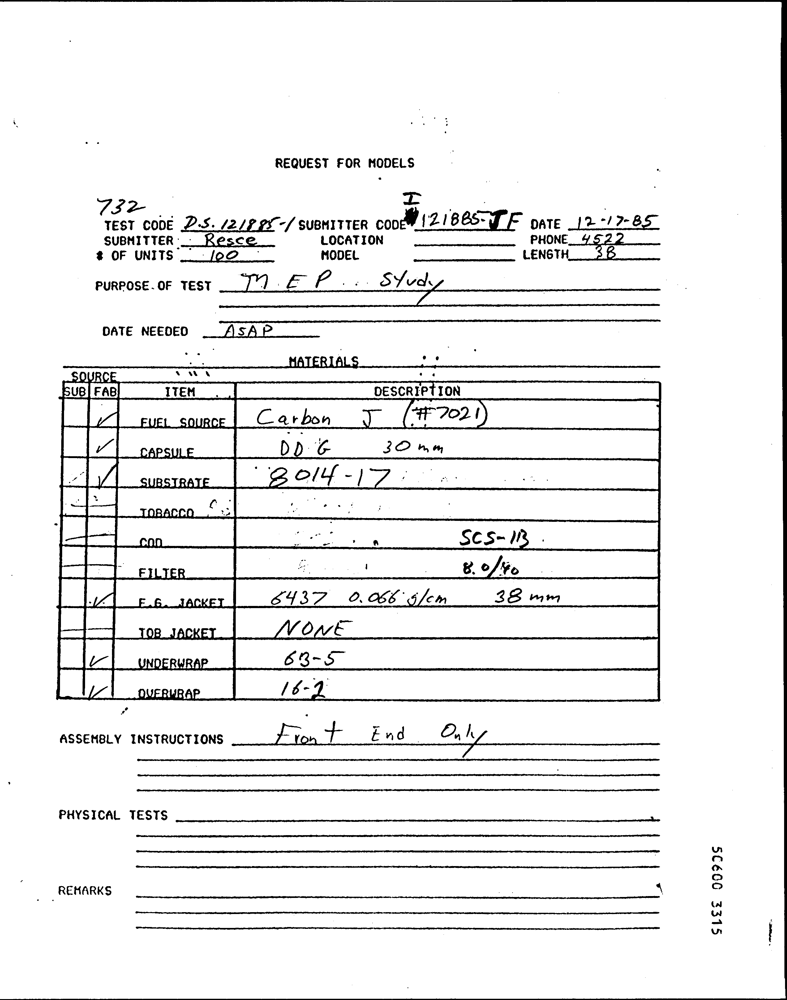 REQUEST FOR MODELS
732
TEST CODE D.S. 121885-1 SUBMITTER CODE I 121885-JF DATE 12-17-85
SUBMITTER Resce LOCATION PHONE 4522
# OF UNITS 100 MODEL LENGTH 38
PURPOSE OF TEST MEP ... Study
DATE NEEDED ASAP
MATERIALS
SOURCE
SUB FAB ITEM DESCRIPTION
✓ FUEL SOURCE Carbon J (#7021)
✓ CAPSULE DDG 30 mm
✓ SUBSTRATE 8014-17
TOBACCO
COD SCS-1B
FILTER 8.0/40
✓ F.G. JACKET 6437 0.066 g/cm 38 mm
TOB JACKET NONE
✓ UNDERWRAP 63-5
✓ OVERWRAP 16-2
ASSEMBLY INSTRUCTIONS Front End Only
PHYSICAL TESTS
REMARKS
50600 3315